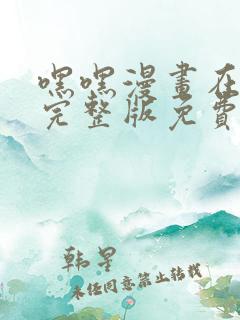 嘿嘿漫畫在
完整版免費
韩星
未经同意禁止转载